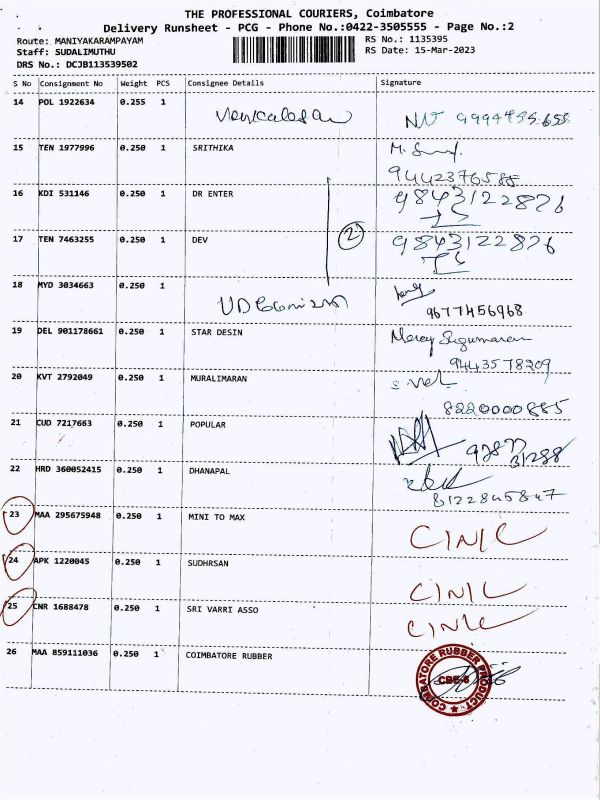 THE PROFESSIONAL COURIERS, Coimbatore
Delivery Runsheet - PCG - Phone No.:0422-3505555 - Page No.:2
Route: MANIYAKARAMPAYAM
RS No.: 1135395
Staff: SUDALIMUTHU
RS Date: 15-Mar-2023
DRS No.: DCJB113539502
S No Consignment No Weight PCS Consignee Details Signature
14 POL 1922634 0.255 1
15 TEN 1977996 0.250 1 SRITHIKA M.
9442376588
16 KDI 531146 0.250 1 DR ENTER 9843122876
17 TEN 7463255 0.250 1 DEV 2 9843122876
18 MYD 3034663 0.250 1
9677456968
19 DEL 901178661 0.250 1 STAR DESIN Mercy Sugumaran
9443578209
20 KVT 2792049 0.250 1 MURALIMARAN
8220000885
21 CUD 7217663 0.250 1 POPULAR
22 HRD 360052415 0.250 1 DHANAPAL
8122845847
23 MAA 295675948 0.250 1 MINI TO MAX C/N/C
24 APK 1220045 0.250 1 SUDHRSAN C/N/C
25 CNR 1688478 0.250 1 SRI VARRI ASSO C/N/C
26 MAA 859111036 0.250 1 COIMBATORE RUBBER
COIMBATORE RUBBER PRODUCT
CBE-6